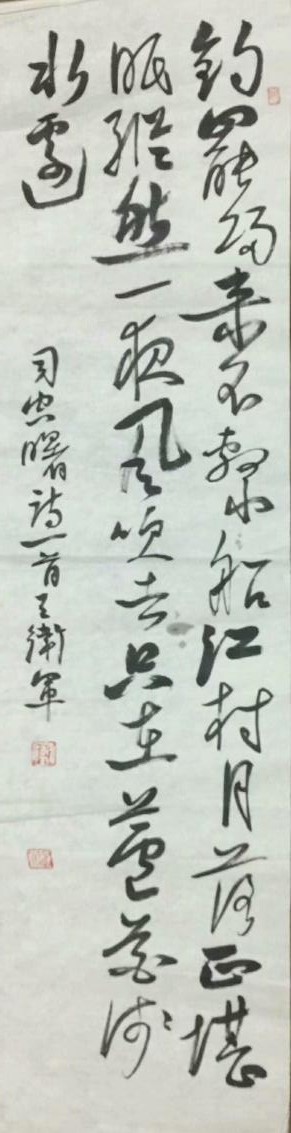 釣罷歸来不繫船江村月落正堪
眠縱然一夜風吹去只在蘆花淺
水邊
司空曙詩一首王衛軍